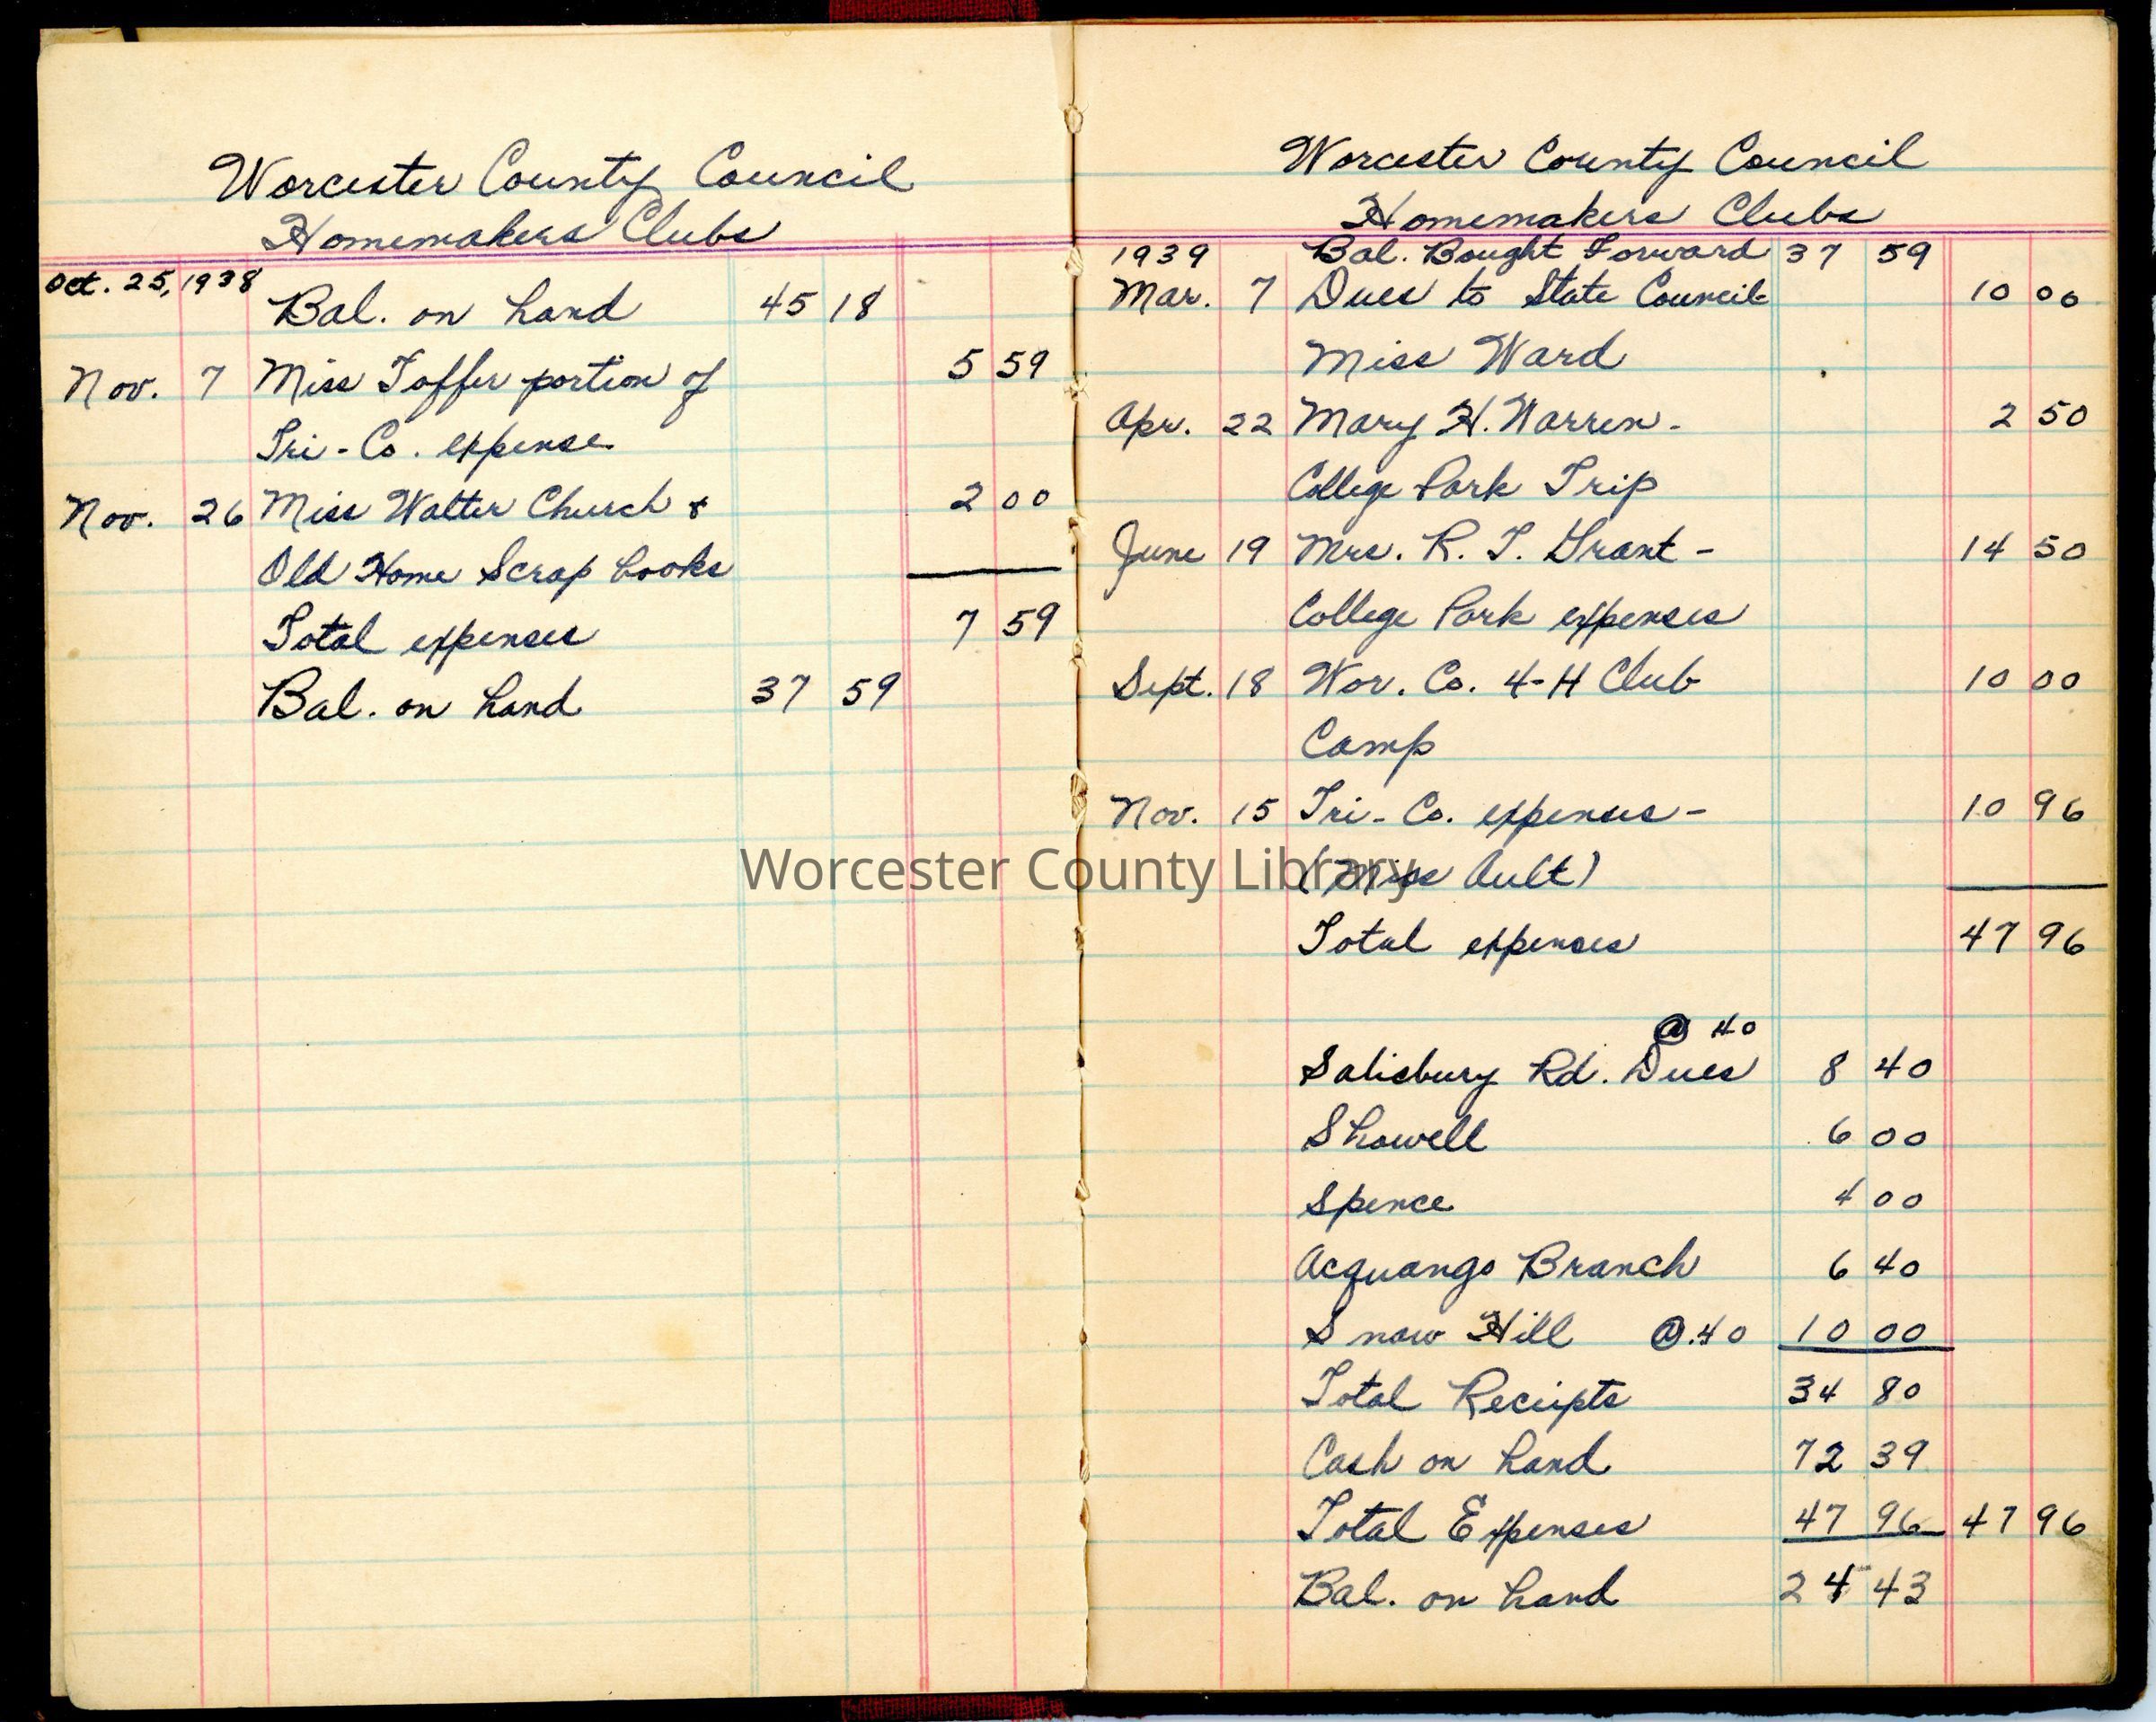 Worcester County Council
Homemakers Clubs
Oct. 25, 1938
Bal. on hand 45 18
Nov. 7 Miss Toffer portion of 5 59
Tri-Co. expense
Nov. 26 Miss Walter Church & 2 00
Old Home Scrap books
Total expenses 7 59
Bal. on hand 37 59
Worcester County Council
Homemakers Clubs
1939 Bal. Bought Forward 37 59
Mar. 7 Dues to State Council- 10 00
Miss Ward
Apr. 22 Mary H. Warren- 2 50
College Park Trip
June 19 Mrs. R. T. Grant- 14 50
College Park expenses
Sept. 18 Wor. Co. 4-H Club 10 00
Camp
Nov. 15 Tri-Co. expenses- 10 96
(Miss Ault)
Total expenses 47 96
@ 40
Salisbury Rd. Dues 8 40
Showell 6 00
Spence 4 00
Acquango Branch 6 40
Snow Hill @.40 10 00
Total Reciepts 34 80
Cash on hand 72 39
Total Expenses 47 96 47 96
Bal. on hand 24 43
Worcester County Library